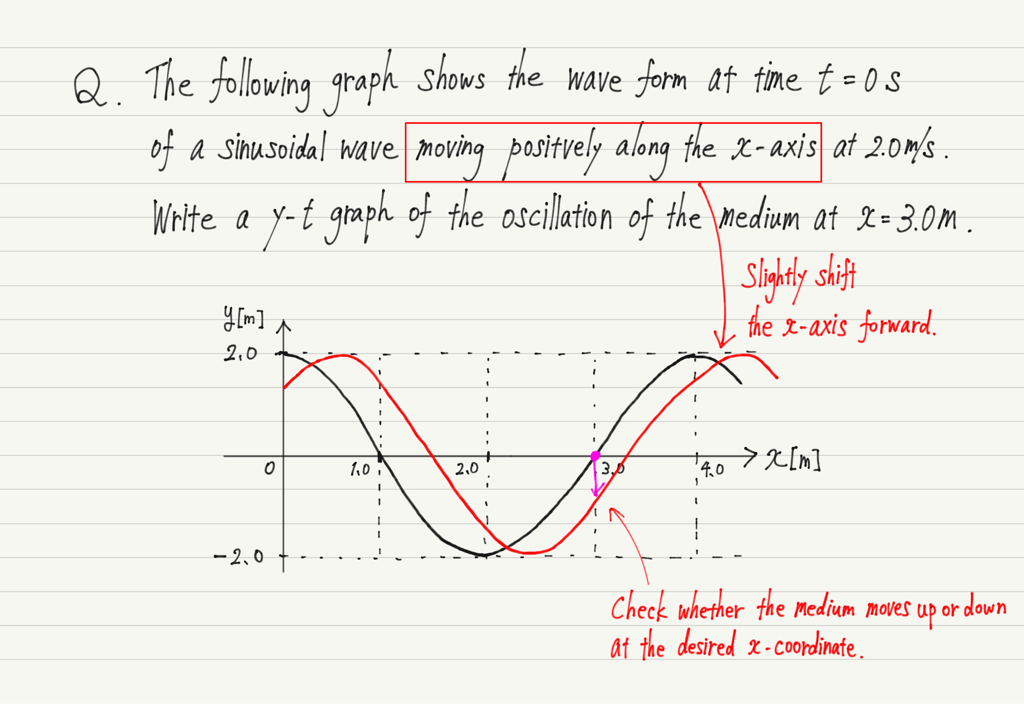 Q. The following graph shows the wave form at time t = 0 s
of a sinusoidal wave moving positvely along the x-axis at 2.0 m/s.
Write a y-t graph of the oscillation of the medium at x = 3.0 m.
Slightly shift
the x-axis forward.
y[m]
2.0
0
1.0
2.0
3.0
4.0
x[m]
-2.0
Check whether the medium moves up or down
at the desired x-coordinate.